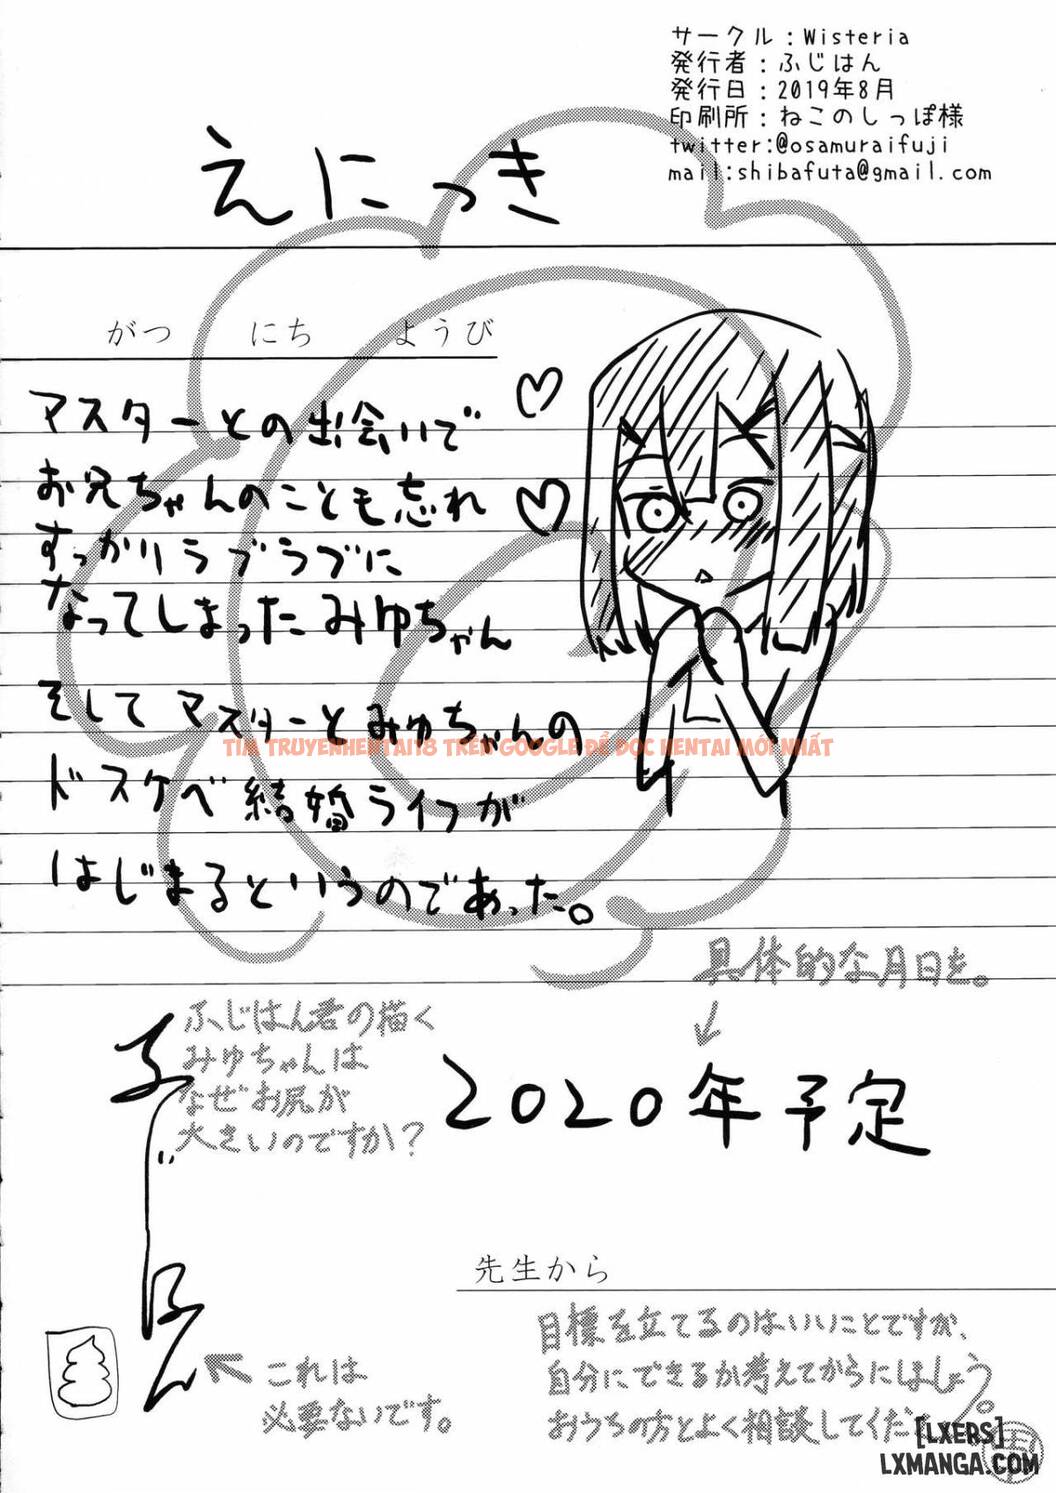 サークル：Wisteria
発行者：ふじはん
発行日：2019年8月
印刷所：ねこのしっぽ様
twitter:@osamuraifuji
mail:shibafuta@gmail.com
えにっき
がつ にち ようび
マスターとの出会いで
お兄ちゃんのことも忘れ
すっかりラブラブに
なってしまったみゆちゃん
そしてマスターとみゆちゃんの
TÌM TRUYENHENTAI18 TRÊN GOOGLE ĐỂ ĐỌC HENTAI MỚI NHẤT
ドスケベ結婚ライフが
はじまるというのであった。
具体的な月日を。
ふじはん君の描く
みゆちゃんは
なぜお尻が
大きいのですか？
2020年予定
ふじはん
先生から
これは
必要ないです。
目標を立てるのはいいことですが、
自分にできるか考えてからにしましょう。
おうちの方とよく相談してくだ
[LXERS]
LXMANGA.COM